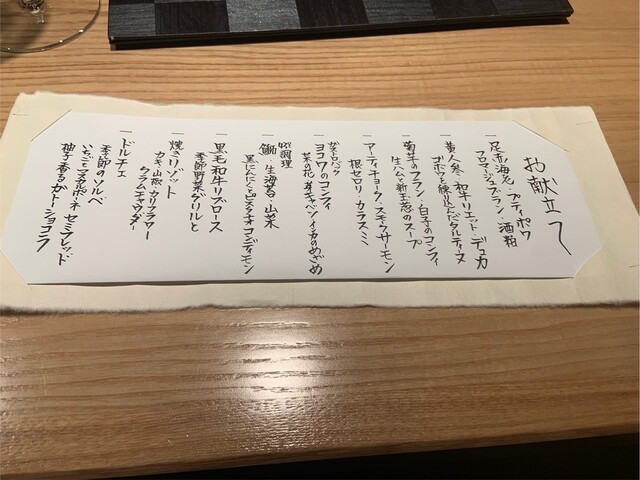 お献立て
一 足赤海老・プティポワ
フロマージュブラン・酒粕
一 黄人参・和牛リエット・デュカ
ゴボウを練り込んだタルティーヌ
一 菊芋のフラン・白子のコンフィ
生ハムと新玉葱のスープ
一 アーティチョーク・スモークサーモン
根セロリ・カラスミ
一 ヨコワのコンフィ
菜の花・芽キャベツ・イカのめざめ
一 鰤・生海苔・山菜
黒にんにくとピスタチオコンディモン
一 黒毛和牛リブロース
季節野菜グリルと
一 焼きリゾット
カキ・山椒・カリフラワー
クラムチャウダー
一 ドルチェ
季節のソルベ
いちごとマスカルポーネ セミフレッド
柚子香るガトーショコラ